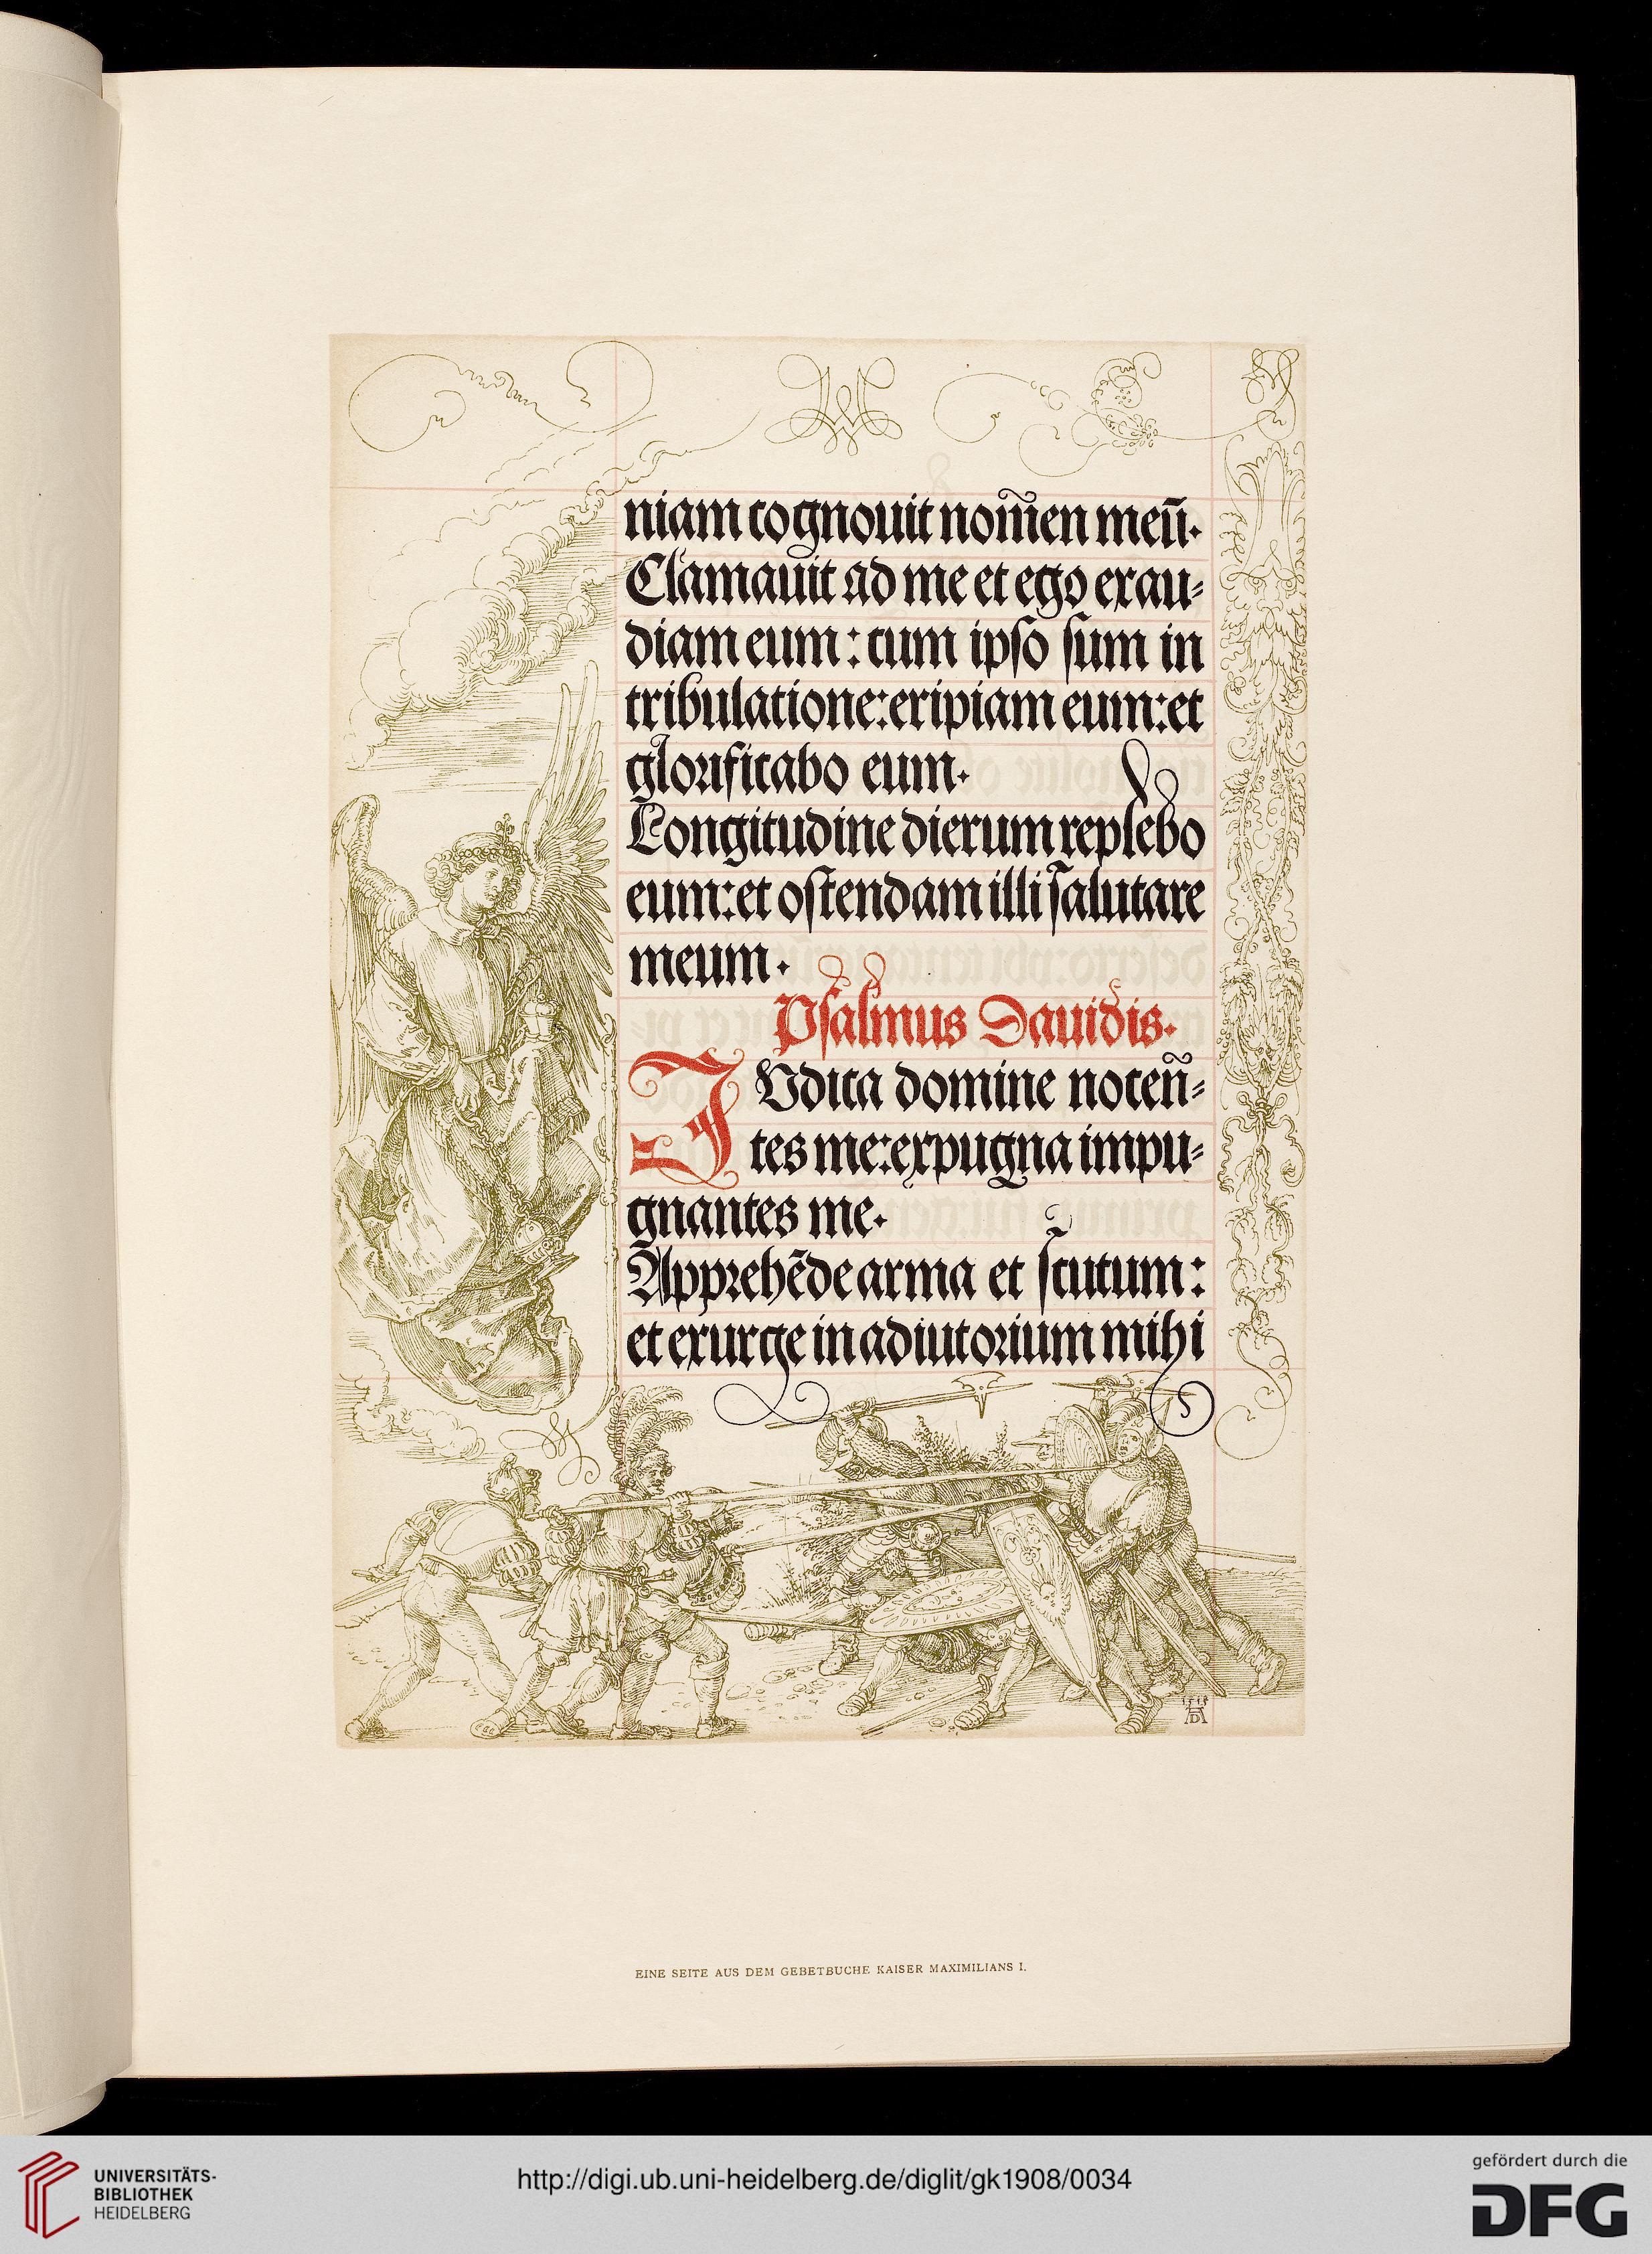 niam cognouit nom̃en meũ.
Clamauit ad me et ego exau-
diam eum: cum ipſo ſum in
tribulatione: eripiam eum: et
glorificabo eum.
Longitudine dierum replebo
eum: et oſtendam illi ſalutare
meum.
Pſalmus Dauidis.
IVdica domine nocen̄-
tes me: expugna impu-
gnantes me.
Apprehẽde arma et ſcutum:
et exurge in adiutorium mihi
1515
AD
EINE SEITE AUS DEM GEBETBUCHE KAISER MAXIMILIANS I.
UNIVERSITÄTS-
BIBLIOTHEK
HEIDELBERG
http://digi.ub.uni-heidelberg.de/diglit/gk1908/0034
gefördert durch die
DFG